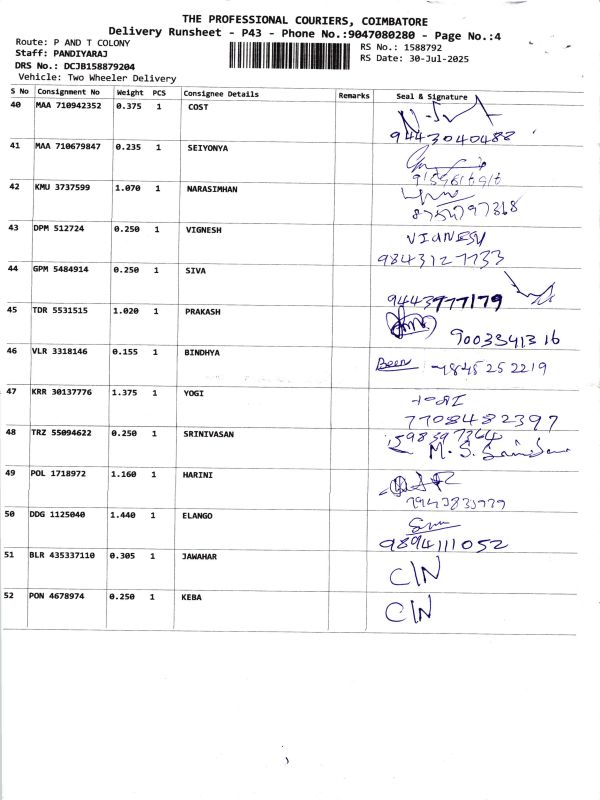 THE PROFESSIONAL COURIERS, COIMBATORE
Delivery Runsheet - P43 - Phone No.:9047080280 - Page No.:4
Route: P AND T COLONY
Staff: PANDIYARAJ
DRS No.: DCJB158879204
Vehicle: Two Wheeler Delivery
RS No.: 1588792
RS Date: 30-Jul-2025
S No Consignment No Weight PCS Consignee Details Remarks Seal & Signature
40 MAA 710942352 0.375 1 COST
9443040488
41 MAA 710679847 0.235 1 SEIYONYA
42 KMU 3737599 1.070 1 NARASIMHAN
43 DPM 512724 0.250 1 VIGNESH VIGNESH
9843127733
44 GPM 5484914 0.250 1 SIVA
9443977179
45 TDR 5531515 1.020 1 PRAKASH
9003341316
46 VLR 3318146 0.155 1 BINDHYA
9845252219
47 KRR 30137776 1.375 1 YOGI
7708482397
48 TRZ 55094622 0.250 1 SRINIVASAN
49 POL 1718972 1.160 1 HARINI
50 DDG 1125040 1.440 1 ELANGO
9894111052
51 BLR 435337110 0.305 1 JAWAHAR C/N
52 PON 4678974 0.250 1 KEBA C/N